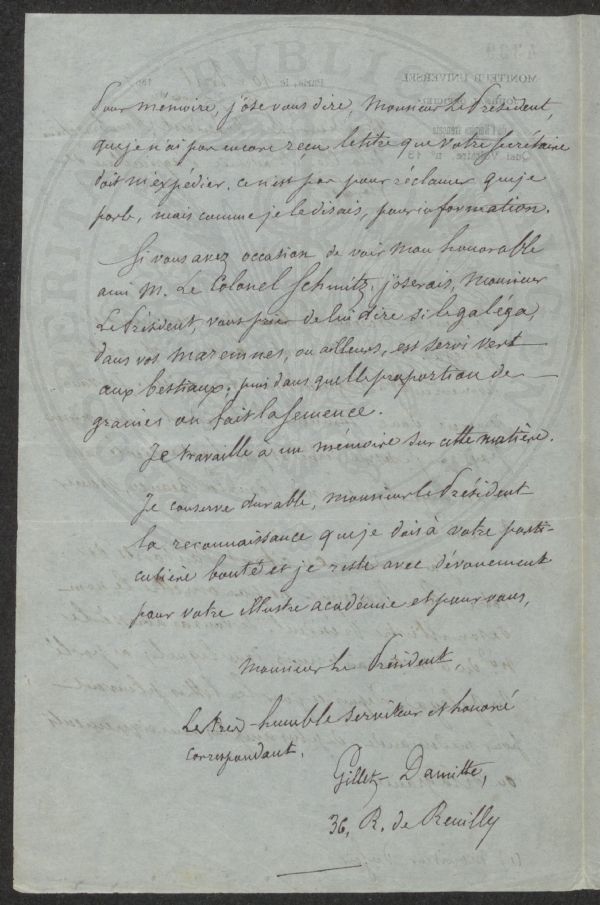 Pour mémoire, j'ose vous dire, Monsieur Le Président,
que je n'ai pas encore reçu le titre que votre secrétaire
doit m'expédier. ce n'est pas pour réclamer que je
parle, mais comme je le disais, pour information.
Si vous avez occasion de voir mon honorable
ami M. Le Colonel Schmitz, j'oserais, Monsieur
Le Président, vous prier de lui dire si le galéga,
dans vos maremnes, ou ailleurs, est servi vert
aux bestiaux; puis dans quelle proportion de
graines on fait la semence.
Je travaille à un mémoire sur cette matière.
Je conserve durable, monsieur le Président
la reconnaissance que je dois à votre parti-
culière bonté et je reste avec dévouement
pour votre illustre académie et pour vous,
Monsieur Le Président,
Le très-humble serviteur et honoré
correspondant.
Gillet-Damitte,
36, R. de Reuilly